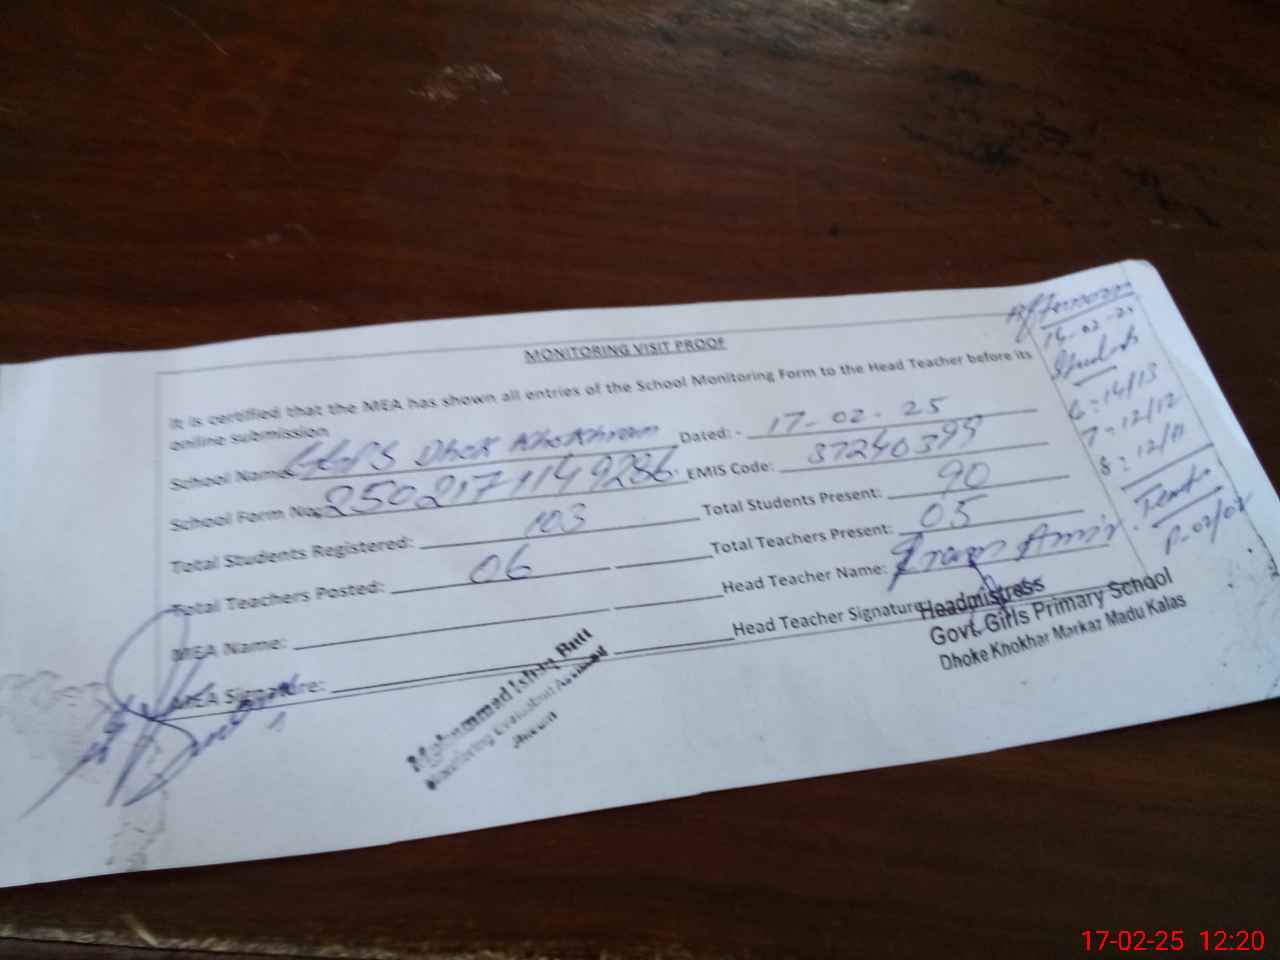 MONITORING VISIT PROOF
It is certified that the MEA has shown all entries of the School Monitoring Form to the Head Teacher before its
online submission
School Name: GGPS Dhok Dated: - 17-02-25
School Form No: EMIS Code: 37240399
Total Students Registered: 103 Total Students Present: 90
Total Teachers Posted: 06 Total Teachers Present: 05
MEA Name: Head Teacher Name: Iram Amir
MEA Signature: Head Teacher Signature
Headmistress
Govt. Girls Primary School
Dhoke Khokhar Markaz Madu Kalas
Mohammad Ishaq Butt
Monitoring Evaluation
Afternoon
Students
6 = 14/13
7 = 12/12
8 = 12/11
17-02-25 12:20